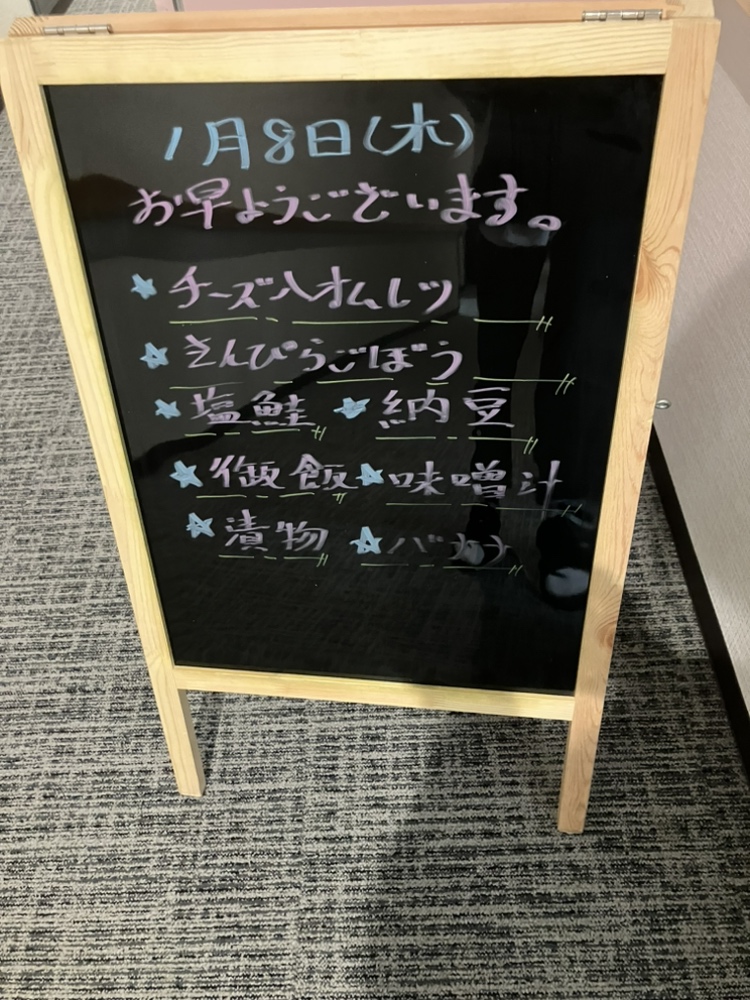 1月8日(木)
お早ようございます。
★チーズ入オムレツ
★きんぴらごぼう
★塩鮭 ★納豆
★御飯 ★味噌汁
★漬物 ★バナナ